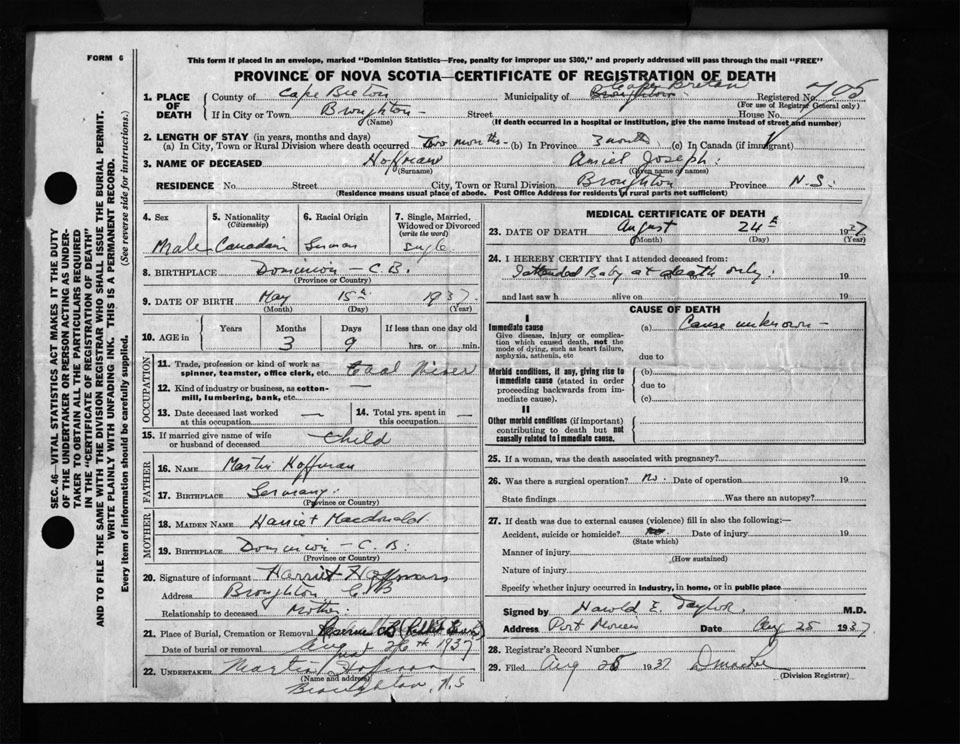 FORM 6
This form if placed in an envelope, marked "Dominion Statistics—Free, penalty for improper use $300," and properly addressed will pass through the mail "FREE"
PROVINCE OF NOVA SCOTIA—CERTIFICATE OF REGISTRATION OF DEATH
1. PLACE OF DEATH
County of Cape Breton Municipality of Cape Breton Registered No. 705
(For use of Registrar General only)
If in City or Town Broughton - Street House No.
(Name) (If death occurred in a hospital or institution, give the name instead of street and number)
2. LENGTH OF STAY (in years, months and days)
(a) In City, Town or Rural Division where death occurred Two months - (b) In Province 3 months (c) In Canada (if immigrant)
3. NAME OF DECEASED Hoffman Amiel Joseph:
(Surname) (Given name or names)
RESIDENCE No. Street City, Town or Rural Division Broughton Province N.S:
(Residence means usual place of abode. Post Office Address for residents of rural parts not sufficient)
4. Sex
Male
5. Nationality
(Citizenship)
Canadain
6. Racial Origin
German
7. Single, Married, Widowed or Divorced
(write the word)
Single
8. BIRTHPLACE Dominion - C.B.
(Province or Country)
9. DATE OF BIRTH May 15th 1937.
(Month) (Day) (Year)
10. AGE in
Years Months Days If less than one day old
3 9 hrs. or min.
OCCUPATION
11. Trade, profession or kind of work as spinner, teamster, office clerk, etc. Coal Miner
12. Kind of industry or business, as cotton-mill, lumbering, bank, etc.
13. Date deceased last worked at this occupation —
14. Total yrs. spent in this occupation —
15. If married give name of wife or husband of deceased Child
FATHER
16. NAME Martin Hoffman
17. BIRTHPLACE Germany.
(Province or Country)
MOTHER
18. MAIDEN NAME Harriet Macdonald.
19. BIRTHPLACE Dominion - C.B:
(Province or Country)
20. Signature of informant Harriet Hoffman
Address Broughton C B
Relationship to deceased Mother.
21. Place of Burial, Cremation or Removal
Date of burial or removal Aug 26th 1937
22. UNDERTAKER Martin Hoffman
(Name and address)
Broughton, N.S
MEDICAL CERTIFICATE OF DEATH
23. DATE OF DEATH August 24th 1937
(Month) (Day) (Year)
24. I HEREBY CERTIFY that I attended deceased from:
I attended Baby at death only. 19
and last saw h alive on 19
CAUSE OF DEATH
I
Immediate cause
Give disease, injury or complication which caused death, not the mode of dying, such as heart failure, asphyxia, asthenia, etc
(a) Cause unknown -
due to
Morbid conditions, if any, giving rise to immediate cause (stated in order proceeding backwards from immediate cause).
(b)
due to
(c)
II
Other morbid conditions (if important) contributing to death but not causally related to immediate cause.
25. If a woman, was the death associated with pregnancy?
26. Was there a surgical operation? No. Date of operation 19
State findings Was there an autopsy?
27. If death was due to external causes (violence) fill in also the following:—
Accident, suicide or homicide? Date of injury 19
(State which)
Manner of injury
(How sustained)
Nature of injury
Specify whether injury occurred in industry, in home, or in public place
Signed by Harold E. Taylor. M.D.
Address Port Morien Date Aug 25 1937
28. Registrar's Record Number
29. Filed Aug 25 1937
(Division Registrar)
SEC. 46—VITAL STATISTICS ACT MAKES IT THE DUTY
OF THE UNDERTAKER OR PERSON ACTING AS UNDERTAKER TO OBTAIN ALL THE PARTICULARS REQUIRED
IN THE "CERTIFICATE OF REGISTRATION OF DEATH"
AND TO FILE THE SAME WITH THE DIVISION REGISTRAR WHO SHALL ISSUE THE BURIAL PERMIT.
WRITE PLAINLY WITH UNFADING INK. THIS IS A PERMANENT RECORD.
Every item of information should be carefully supplied. (See reverse side for instructions.)